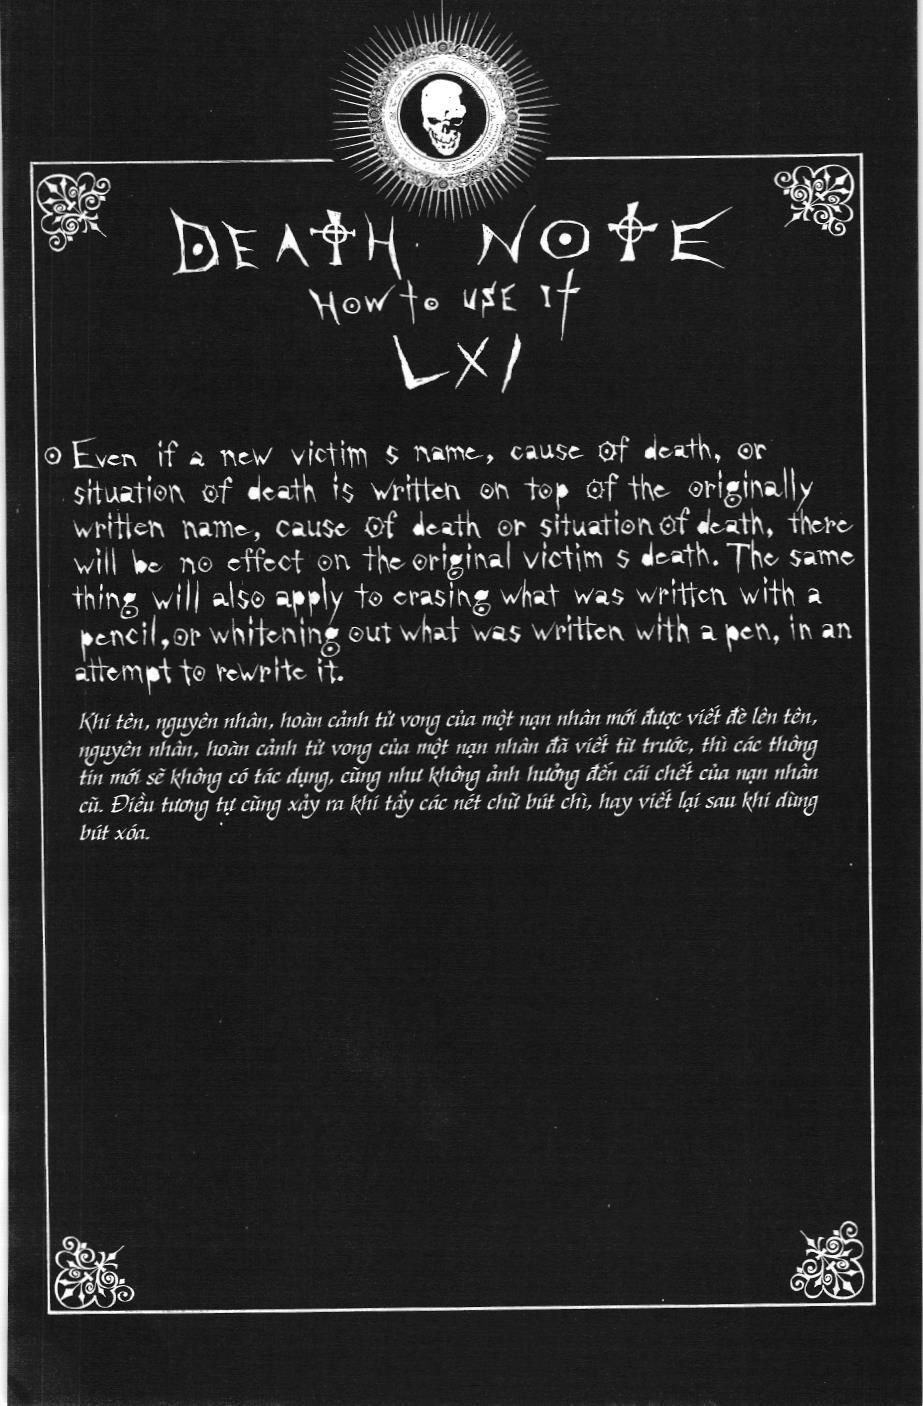 DEATH NOTE
HOW to USE It
LXI
Even if a new victim s name, cause of death, or
situation of death is written on top of the originally
written name, cause of death or situation of death, there
will be no effect on the original victim s death. The same
thing will also apply to erasing what was written with a
pencil, or whitening out what was written with a pen, in an
attempt to rewrite it.
Khi tên, nguyên nhân, hoàn cảnh tử vong của một nạn nhân mới được viết đè lên tên,
nguyên nhân, hoàn cảnh tử vong của một nạn nhân đã viết từ trước, thì các thông
tin mới sẽ không có tác dụng, cũng như không ảnh hưởng đến cái chết của nạn nhân
cũ. Điều tương tự cũng xảy ra khi tẩy các nét chữ bút chì, hay viết lại sau khi dùng
bút xóa.